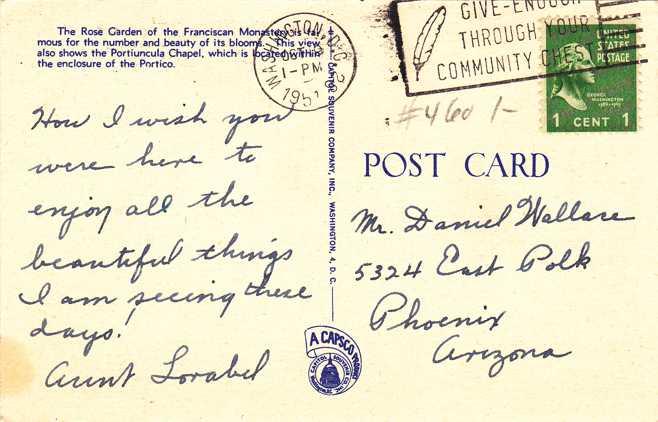 The Rose Garden of the Franciscan Monastery is fa-
mous for the number and beauty of its blooms. This view
also shows the Portiuncula Chapel, which is located within
the enclosure of the Portico.
How I wish you
were here to
enjoy all the
beautiful things
I am seeing these
days!
Aunt Lorabel
WASHINGTON, D.C.
1-PM
1951
GIVE-ENOUGH
THROUGH YOUR
COMMUNITY CHEST
UNITED
STATES
POSTAGE
GEORGE
WASHINGTON
1 CENT 1
#460 1-
CAPITOL SOUVENIR COMPANY, INC., WASHINGTON, 4, D. C.
POST CARD
Mr. Daniel Wallace
5324 East Polk
Phoenix
Arizona
A CAPSCO PRODUCT
CAPITOL SOUVENIR CO. INC.